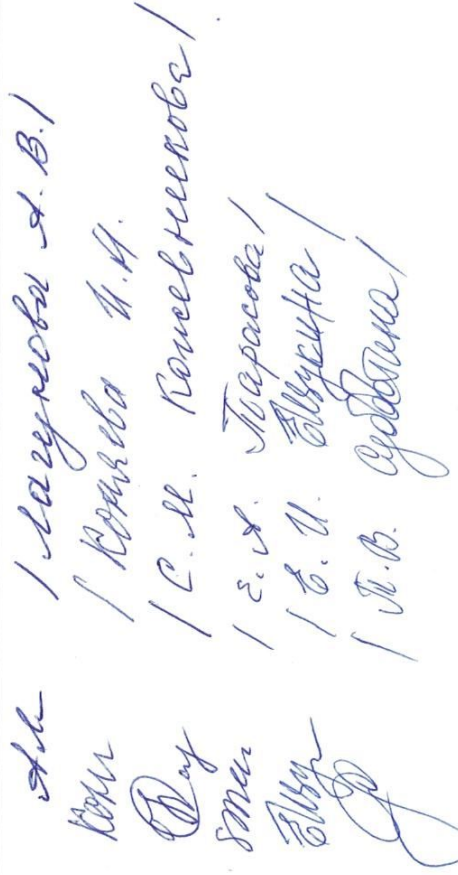 / Лагунова А.В./
/ Коняева И.И.
/ С.М. Кожевникова/
/ Е.А. Тарасова/
/ Е.И. Щукина/
/ Т.В. Субботина/